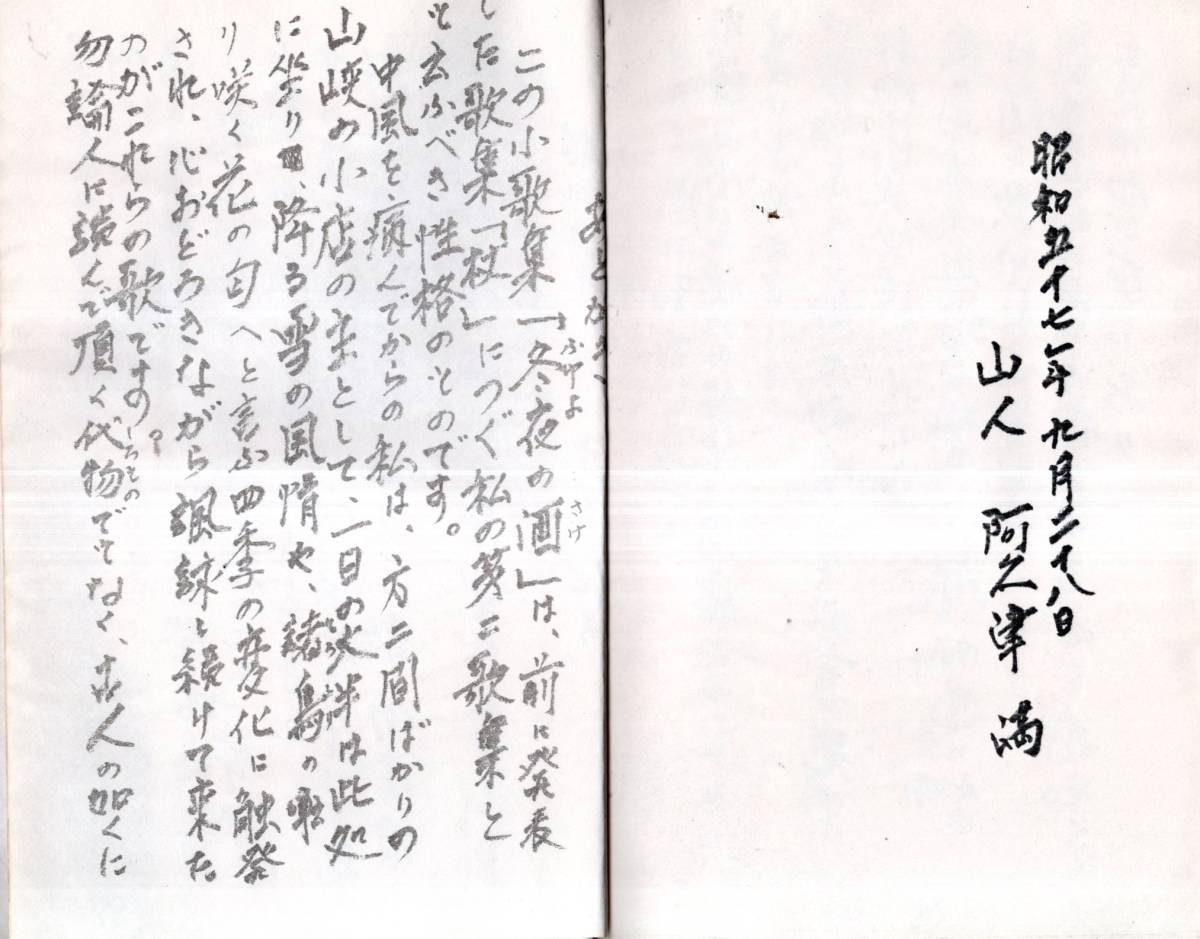 昭和五十七年九月二十八日
山人 阿久津 満
あとがき
この小歌集「冬夜の酒」は、前に発表
ふゆよ さけ
した歌集「杖」につぐ私の第二歌集と
も云ふべき性格のものです。
中風を病んでからの私は、方二間ばかりの
山峡の小店の主として、一日の大半は此処
に坐り、降る雪の風情や、諸鳥の囀
り咲く花の匂へと言ふ四季の変化に触発
され、心おどろきながら諷詠し続けて来た
のがこれらの歌です。
勿論人に読んで頂く代物でもなく、古人の如くに
しろもの